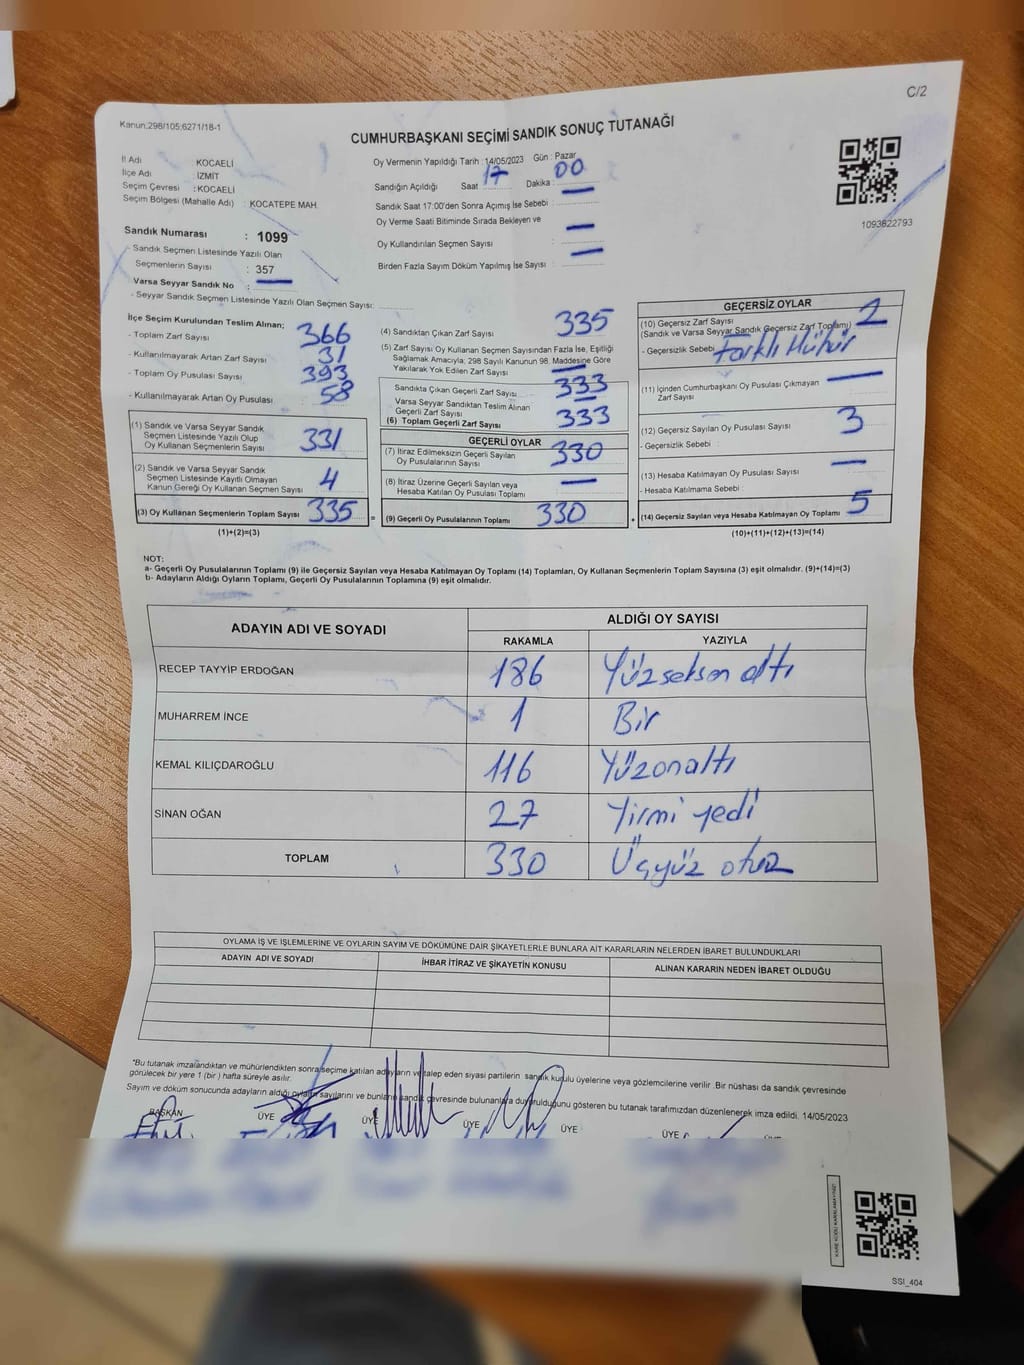 C/2
Kanun:298/105;6271/18-1
CUMHURBAŞKANI SEÇİMİ SANDIK SONUÇ TUTANAĞI
İl Adı : KOCAELİ
İlçe Adı : İZMİT
Seçim Çevresi : KOCAELİ
Seçim Bölgesi (Mahalle Adı) : KOCATEPE MAH.
Oy Vermenin Yapıldığı Tarih : 14/05/2023 Gün : Pazar
Sandığın Açıldığı Saat : 17 Dakika : 00
Sandık Saat 17:00'den Sonra Açımış İse Sebebi : —
Oy Verme Saati Bitiminde Sırada Bekleyen ve
Oy Kullandırılan Seçmen Sayısı : —
Birden Fazla Sayım Döküm Yapılmış İse Sayısı : —
1093822793
Sandık Numarası : 1099
- Sandık Seçmen Listesinde Yazılı Olan
Seçmenlerin Sayısı : 357
Varsa Seyyar Sandık No : —
- Seyyar Sandık Seçmen Listesinde Yazılı Olan Seçmen Sayısı:
İlçe Seçim Kurulundan Teslim Alınan;
- Toplam Zarf Sayısı : 366
- Kullanılmayarak Artan Zarf Sayısı : 31
- Toplam Oy Pusulası Sayısı : 393
- Kullanılmayarak Artan Oy Pusulası : 58
(1) Sandık ve Varsa Seyyar Sandık
Seçmen Listesinde Yazılı Olup
Oy Kullanan Seçmenlerin Sayısı : 331
(2) Sandık ve Varsa Seyyar Sandık
Seçmen Listesinde Kayıtlı Olmayan
Kanun Gereği Oy Kullanan Seçmen Sayısı : 4
(3) Oy Kullanan Seçmenlerin Toplam Sayısı : 335
(1)+(2)=(3)
(4) Sandıktan Çıkan Zarf Sayısı : 335
(5) Zarf Sayısı Oy Kullanan Seçmen Sayısından Fazla İse, Eşitliği
Sağlamak Amacıyla, 298 Sayılı Kanunun 98. Maddesine Göre
Yakılarak Yok Edilen Zarf Sayısı : —
Sandıkta Çıkan Geçerli Zarf Sayısı : 333
Varsa Seyyar Sandıktan Teslim Alınan
Geçerli Zarf Sayısı : —
(6) Toplam Geçerli Zarf Sayısı : 333
GEÇERLİ OYLAR
(7) İtiraz Edilmeksizin Geçerli Sayılan
Oy Pusulalarının Sayısı : 330
(8) İtiraz Üzerine Geçerli Sayılan veya
Hesaba Katılan Oy Pusulası Toplamı : —
= (9) Geçerli Oy Pusulalarının Toplamı : 330
GEÇERSİZ OYLAR
(10) Geçersiz Zarf Sayısı : 2
(Sandık ve Varsa Seyyar Sandık Geçersiz Zarf Toplamı)
- Geçersizlik Sebebi : Farklı Mühür
(11) İçinden Cumhurbaşkanı Oy Pusulası Çıkmayan
Zarf Sayısı : —
(12) Geçersiz Sayılan Oy Pusulası Sayısı : 3
- Geçersizlik Sebebi :
(13) Hesaba Katılmayan Oy Pusulası Sayısı : —
- Hesaba Katılmama Sebebi :
+ (14) Geçersiz Sayılan veya Hesaba Katılmayan Oy Toplamı : 5
(10)+(11)+(12)+(13)=(14)
NOT:
a- Geçerli Oy Pusulalarının Toplamı (9) ile Geçersiz Sayılan veya Hesaba Katılmayan Oy Toplamı (14) Toplamları, Oy Kullanan Seçmenlerin Toplam Sayısına (3) eşit olmalıdır. (9)+(14)=(3)
b- Adayların Aldığı Oyların Toplamı, Geçerli Oy Pusulalarının Toplamına (9) eşit olmalıdır.
ADAYIN ADI VE SOYADI ALDIĞI OY SAYISI
RAKAMLA YAZIYLA
RECEP TAYYİP ERDOĞAN 186 Yüzseksen altı
MUHARREM İNCE 1 Bir
KEMAL KILIÇDAROĞLU 116 Yüzonaltı
SİNAN OĞAN 27 Yirmi yedi
TOPLAM 330 Üçyüz otuz
OYLAMA İŞ VE İŞLEMLERİNE VE OYLARIN SAYIM VE DÖKÜMÜNE DAİR ŞİKAYETLERLE BUNLARA AİT KARARLARIN NELERDEN İBARET BULUNDUKLARI
ADAYIN ADI VE SOYADI İHBAR İTİRAZ VE ŞİKAYETİN KONUSU ALINAN KARARIN NEDEN İBARET OLDUĞU
*Bu tutanak imzalandıktan ve mühürlendikten sonra seçime katılan adayların ve talep eden siyasi partilerin sandık kurulu üyelerine veya gözlemcilerine verilir .Bir nüshası da sandık çevresinde
görülecek bir yere 1 (bir ) hafta süreyle asılır.
Sayım ve döküm sonucunda adayların aldığı oyların sayılarını ve bunların sandık çevresinde bulunanlara duyurulduğunu gösteren bu tutanak tarafımızdan düzenlenerek imza edildi. 14/05/2023
BAŞKAN ÜYE ÜYE ÜYE ÜYE ÜYE
SSI_404